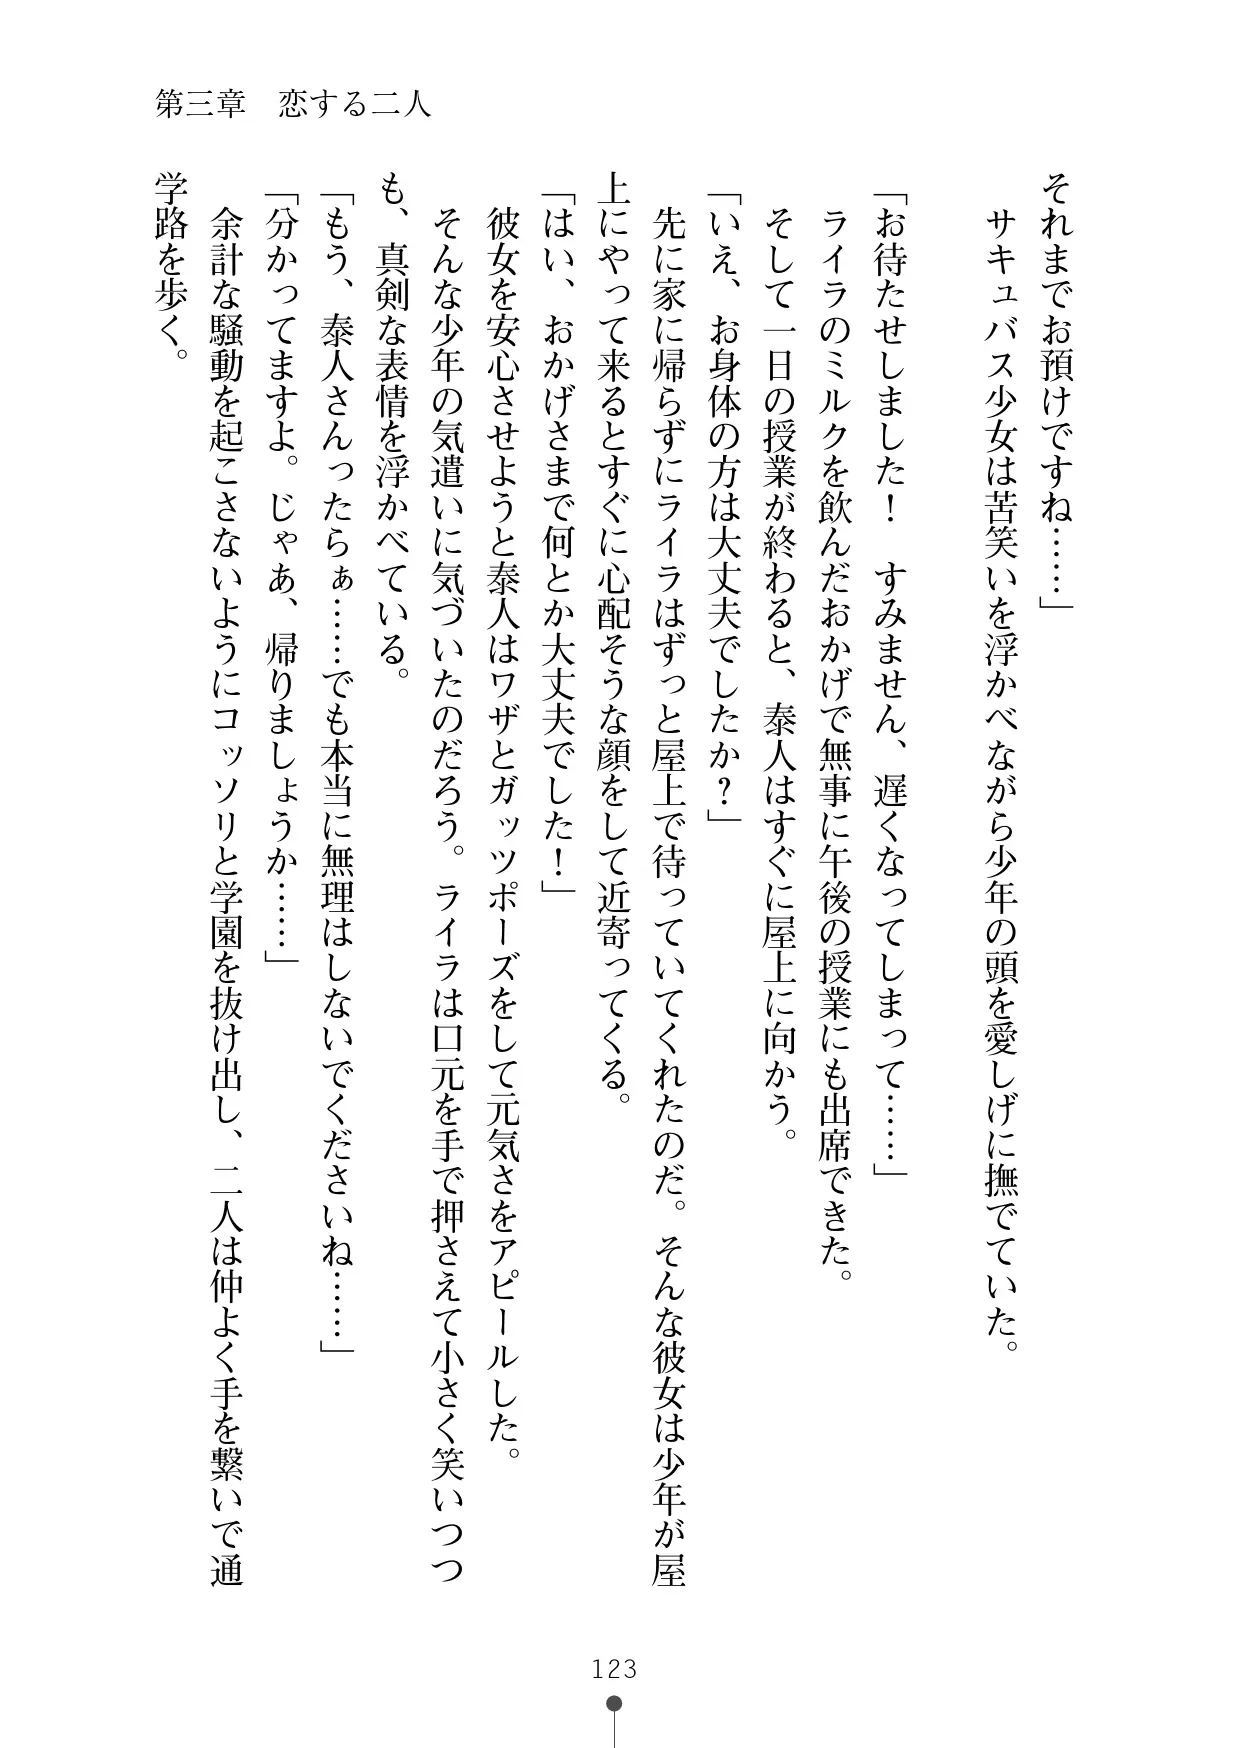 第三章　恋する二人
それまでお預けですね……」
　サキュバス少女は苦笑いを浮かべながら少年の頭を愛しげに撫でていた。
「お待たせしました！　すみません、遅くなってしまって……」
　ライラのミルクを飲んだおかげで無事に午後の授業にも出席できた。
　そして一日の授業が終わると、泰人はすぐに屋上に向かう。
「いえ、お身体の方は大丈夫でしたか？」
　先に家に帰らずにライラはずっと屋上で待っていてくれたのだ。そんな彼女は少年が屋
上にやって来るとすぐに心配そうな顔をして近寄ってくる。
「はい、おかげさまで何とか大丈夫でした！」
　彼女を安心させようと泰人はワザとガッツポーズをして元気さをアピールした。
　そんな少年の気遣いに気づいたのだろう。ライラは口元を手で押さえて小さく笑いつつ
も、真剣な表情を浮かべている。
「もう、泰人さんったらぁ……でも本当に無理はしないでくださいね……」
「分かってますよ。じゃあ、帰りましょうか……」
　余計な騒動を起こさないようにコッソリと学園を抜け出し、二人は仲よく手を繋いで通
学路を歩く。
123